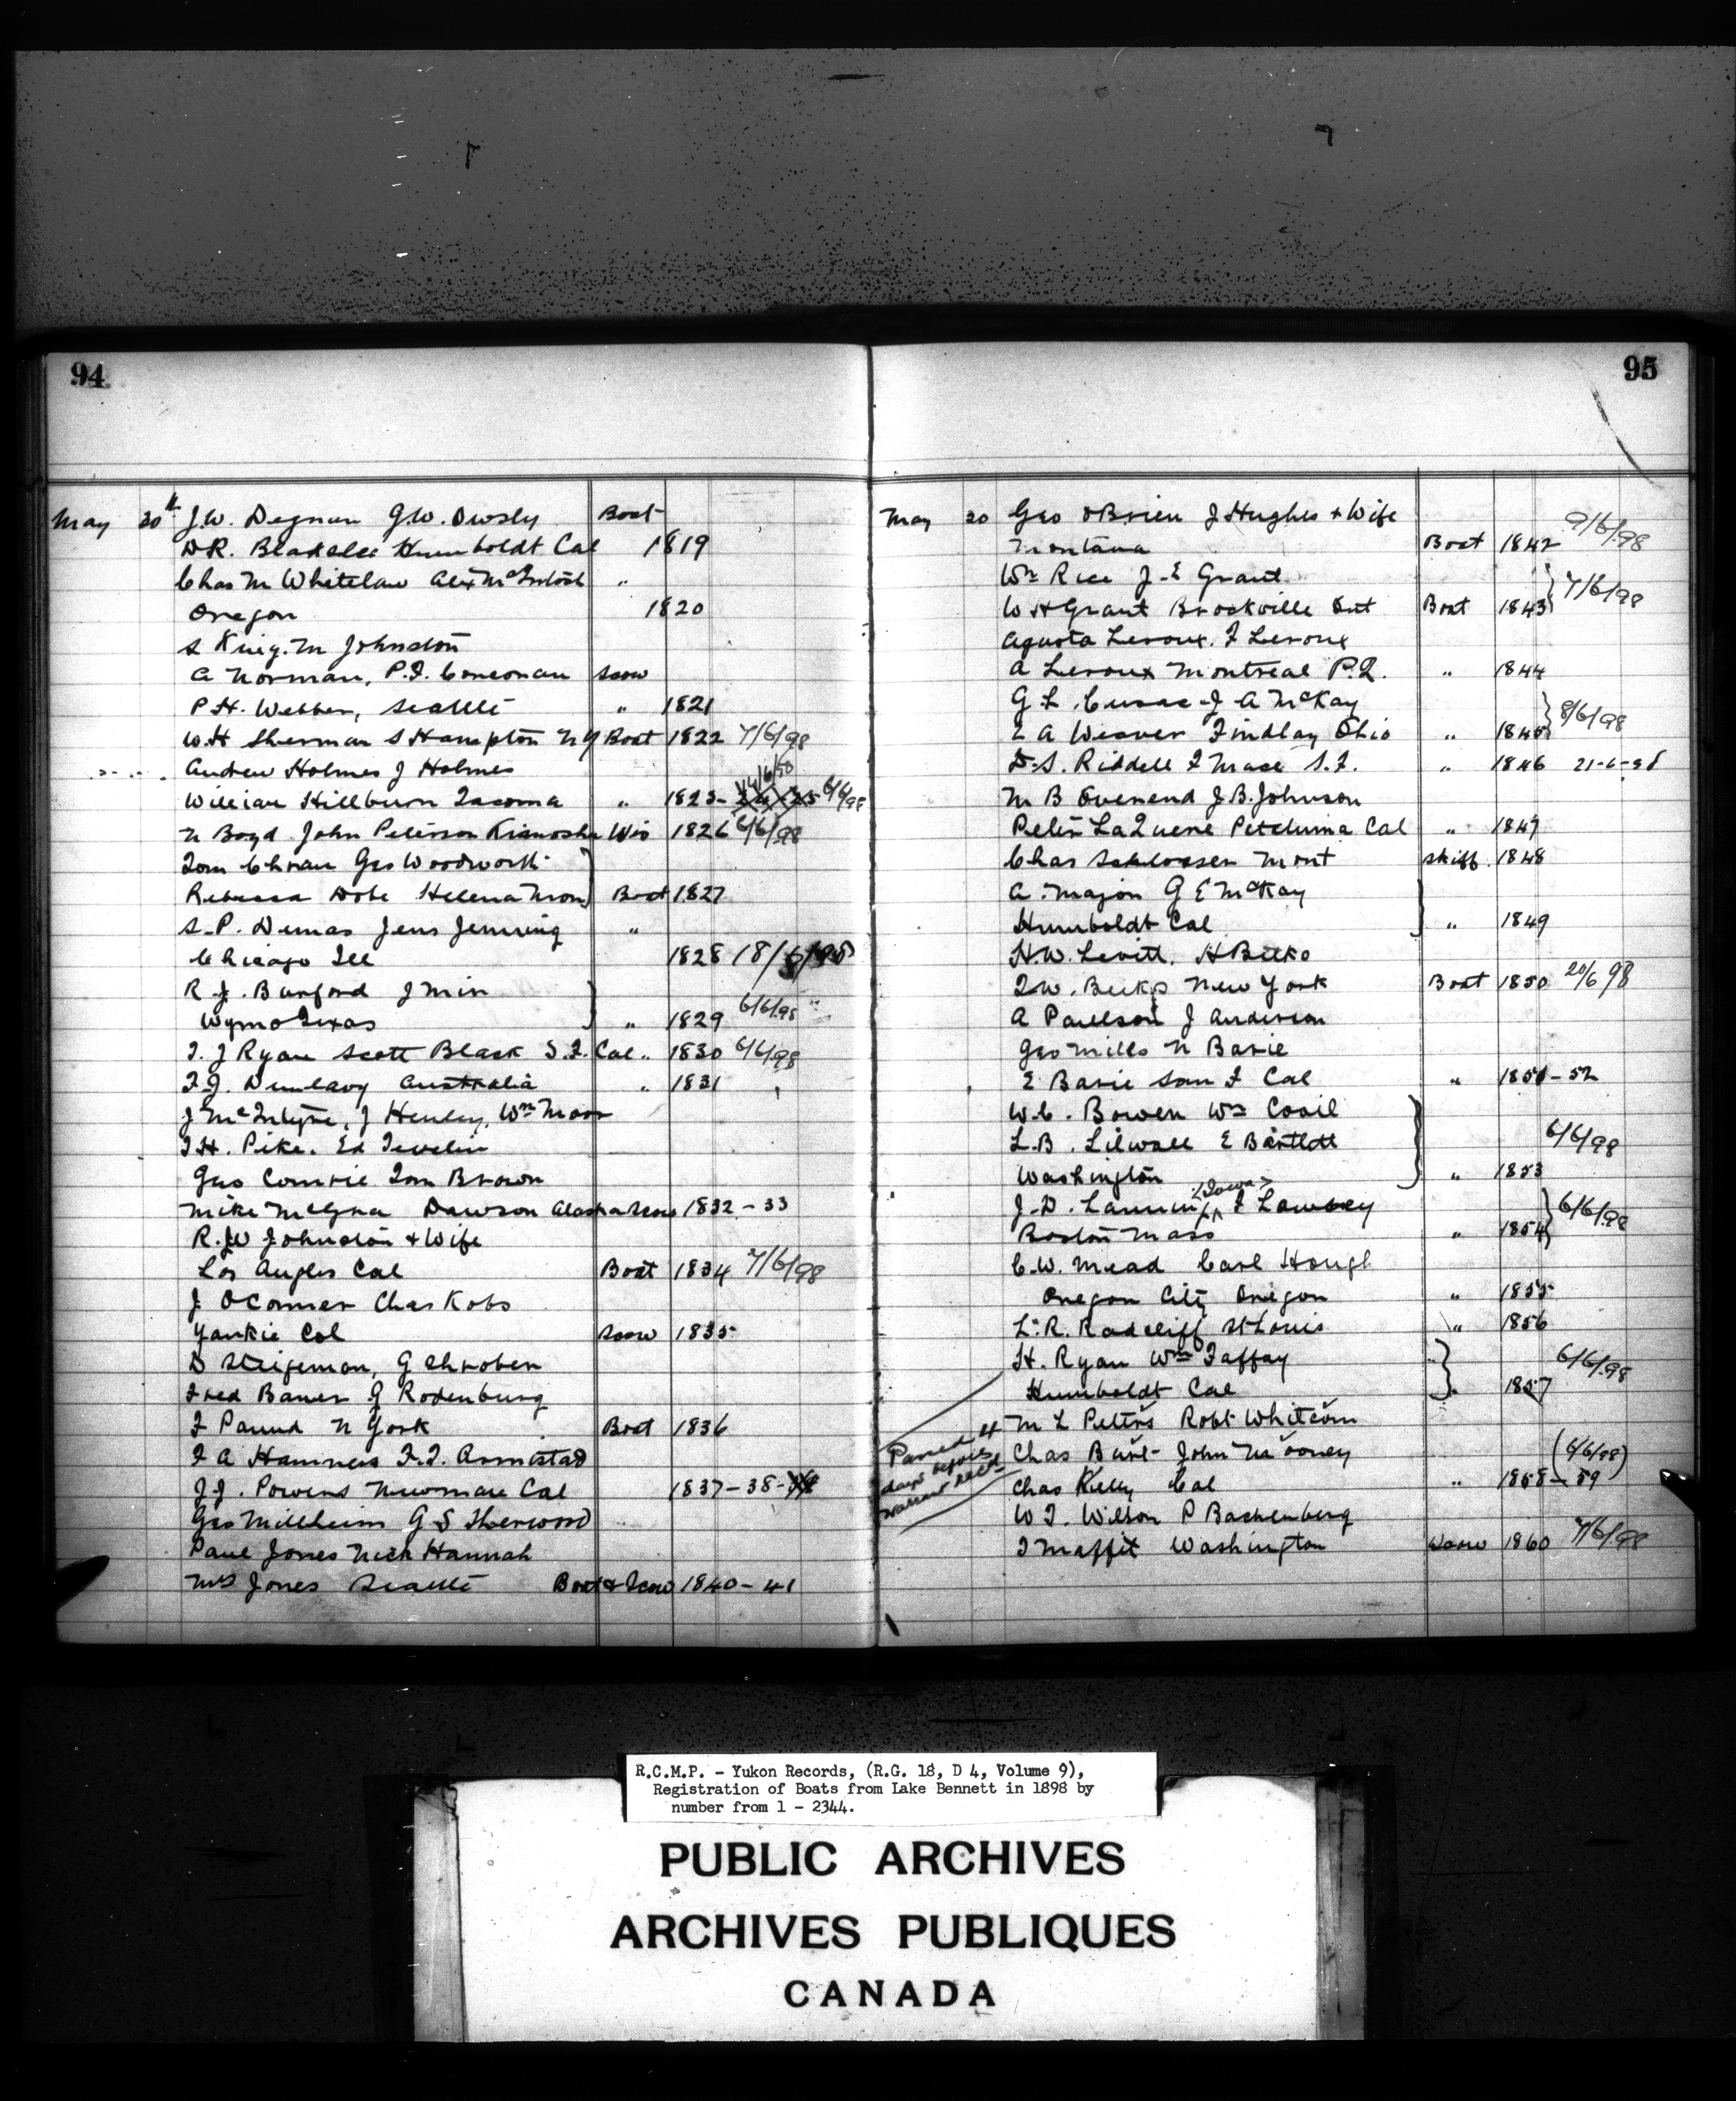 94
May 30th J.W. Degnan G.W. Owsly Boat
D.R. Blakslee Humboldt Cal 1819
Chas M Whitelaw Alex McIntosh "
Oregon 1820
S King. M Johnston
A Norman, P.F. Scow
P.H. Webber, Seattle " 1821
W.H Sherman S Hampton N Y Boat 1822 7/6/98
Andrew Holmes J Holmes
William Hillburn Tacoma " 1823- 24-25 6/6/98
N Boyd John Peterson Kianosha Wis 1826 6/6/98
Tom Geo Woodworth
Rebecca Dobe Helena Mon Boat 1827
S.P. Dumas Jens Jenning "
Chicago Ill 1828 18/6/98
R.J. Burford J Min
Wymo Texas " 1829 6/6/98
T.J Ryan Scott Black S.F. Cal " 1830 6/6/98
F.J. Dunlavy Australia " 1831
J McIntyre, J Henley, Wm Moor
T.H. Pike. Ed Tevelin
Geo Comrie Tom Brown
Mike Dawson Alaska Scow 1832-33
R.W Johnston + Wife
Los Angles Cal Boat 1834 7/6/98
J OConner Chas Kobs
Yankie Col Scow 1835
D Steigeman, G Shrober
Fred Bauer G Rodenburg
F Paund N York Boat 1836
F A Hammers F.T. Armstad
J.J. Powers Newman Cal 1837-38-39
Geo Millheim G S Sherwood
Paul Jones Nick Hannah
Mrs Jones Seattle Boat & Scow 1840-41
95
May 30 Geo OBrien J Hughes + Wife
Montana Boat 1842 9/6/98
Wm Rice J.E Grant
W H Grant Brockville Ont Boat 1843 7/6/98
Agusta Leroux. F Leroux
A Leroux Montreal P.Q. " 1844
G L J A McKay
E A Weaver Findlay Ohio " 1845 8/6/98
D.S. Riddell F Mace S.F. " 1846 21-6-98
M B Overend J.B. Johnson
Peter LaQuene Petaluma Cal " 1847
Chas Schlosser Mont Skiff 1848
A. Major G E McKay
Humboldt Cal " 1849
H.W. Levitt. H
New York Boat 1850 20/6 98
A Paulson J Anderson
Geo Mills N Barie
E Barie San F Cal " 1851-52
W.C. Bowen Wm Covil
L.B. Lilwall E Bartlett 6/6/98
Washington " 1853
J.D. Lanning (Iowa) F Lawsey
Boston Mass " 1854 6/6/98
C.W. Mead Carl Hough
Oregon City Oregon " 1855
L.R. Radcliff St Louis " 1856
H. Ryan Wm Faffay 6/6/98
Humboldt Cal " 1857
M L Peters Robt Whitcom
Passed 4
days before
warrant
Chas Burt John Mooney (6/6/98)
Chas Kelly Cal " 1858-59
W T. Wilson P Backenberg
T Maffit Washington Scow 1860 7/6/98
R.C.M.P. - Yukon Records, (R.G. 18, D 4, Volume 9),
Registration of Boats from Lake Bennett in 1898 by
number from 1 - 2344.
PUBLIC ARCHIVES
ARCHIVES PUBLIQUES
CANADA